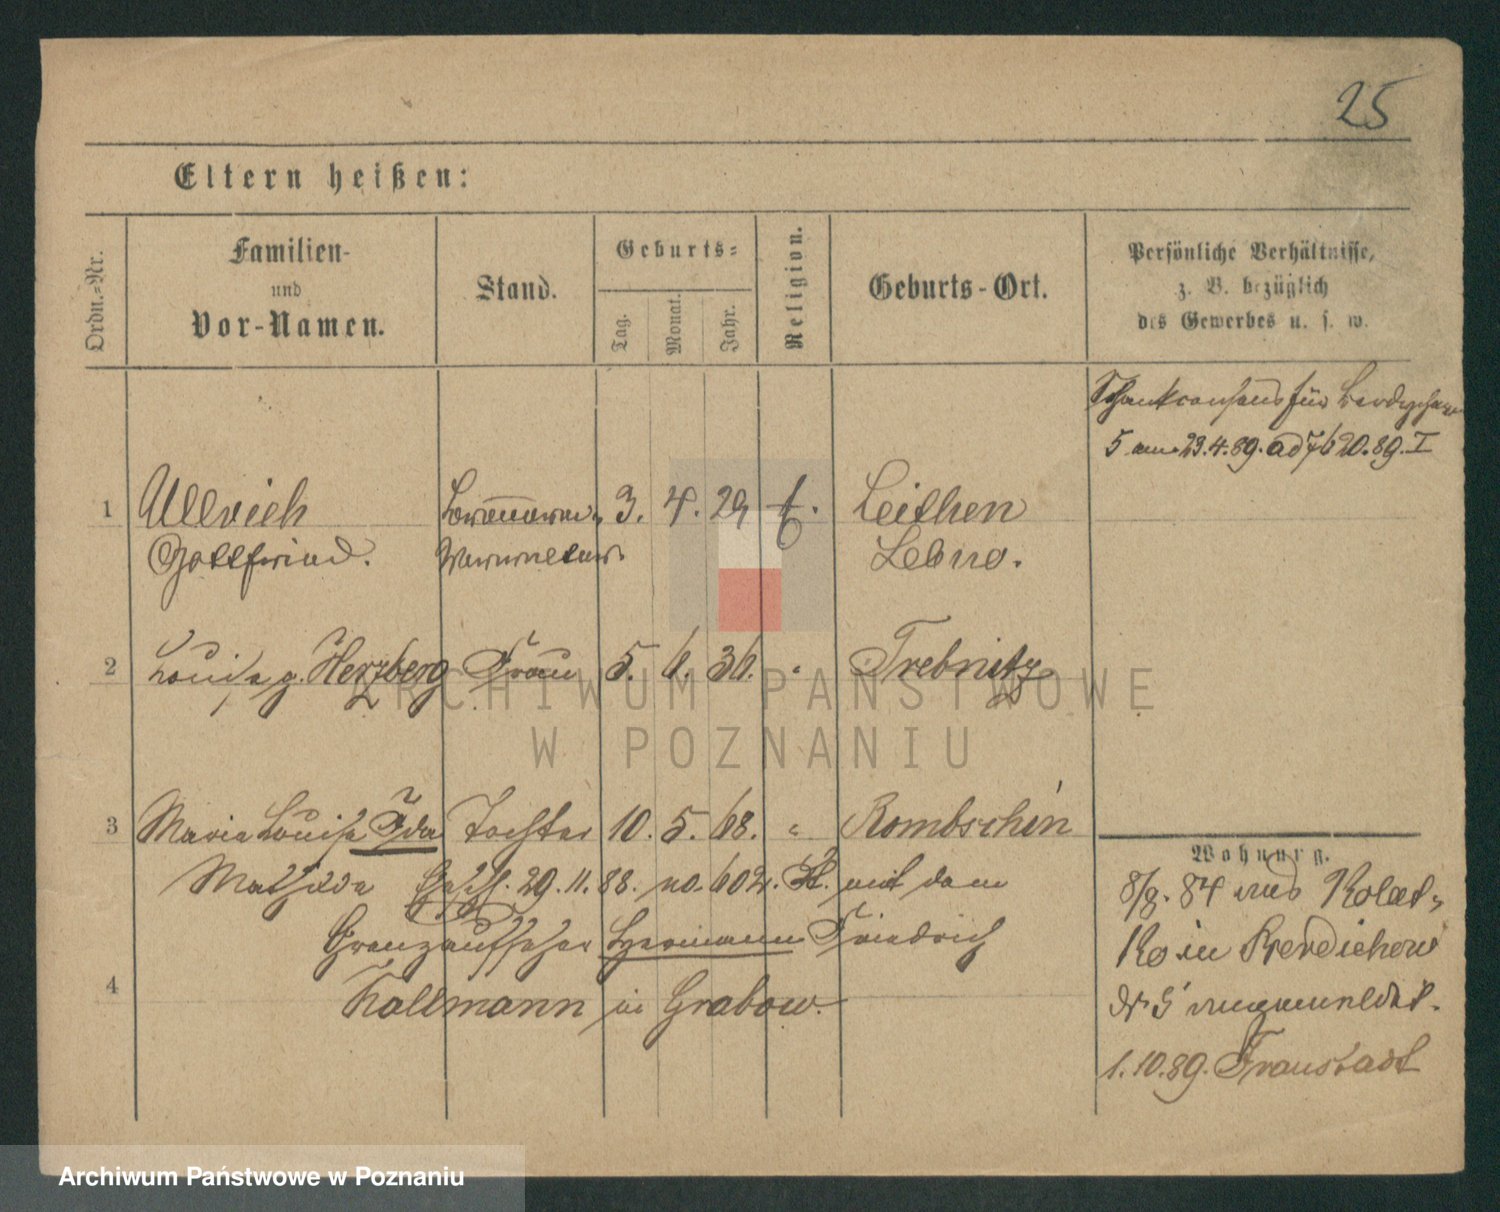 25
Eltern heißen:
Ordn.-Nr.
Familien-
und
Vor-Namen.
Stand.
Geburts-
Tag.
Monat.
Jahr.
Religion.
Geburts-Ort.
Persönliche Verhältnisse,
z. B. bezüglich
des Gewerbes u. s. w.
Schankconsens für
5 am 23.4.89. ad 7620.89. I
1 Ullrich 3. 4. 29
Gottfried.
2 Louise g. Herzberg Frau 5. 6. 36. " Trebnitz
3 Maria Louise Ida Tochter 10. 5. 68. " Rombschin
Mathilde 29.11.88. no. 602. mit dem
Grenzaufseher Hermann Friedrich
4 Kallmann in Grabow.
Wohnung.
8/8. 84 aus
Ko in Berdichowo
No 5 angemeldet.
1.10.89. Fraustadt
ARCHIWUM PAŃSTWOWE
W POZNANIU
Archiwum Państwowe w Poznaniu